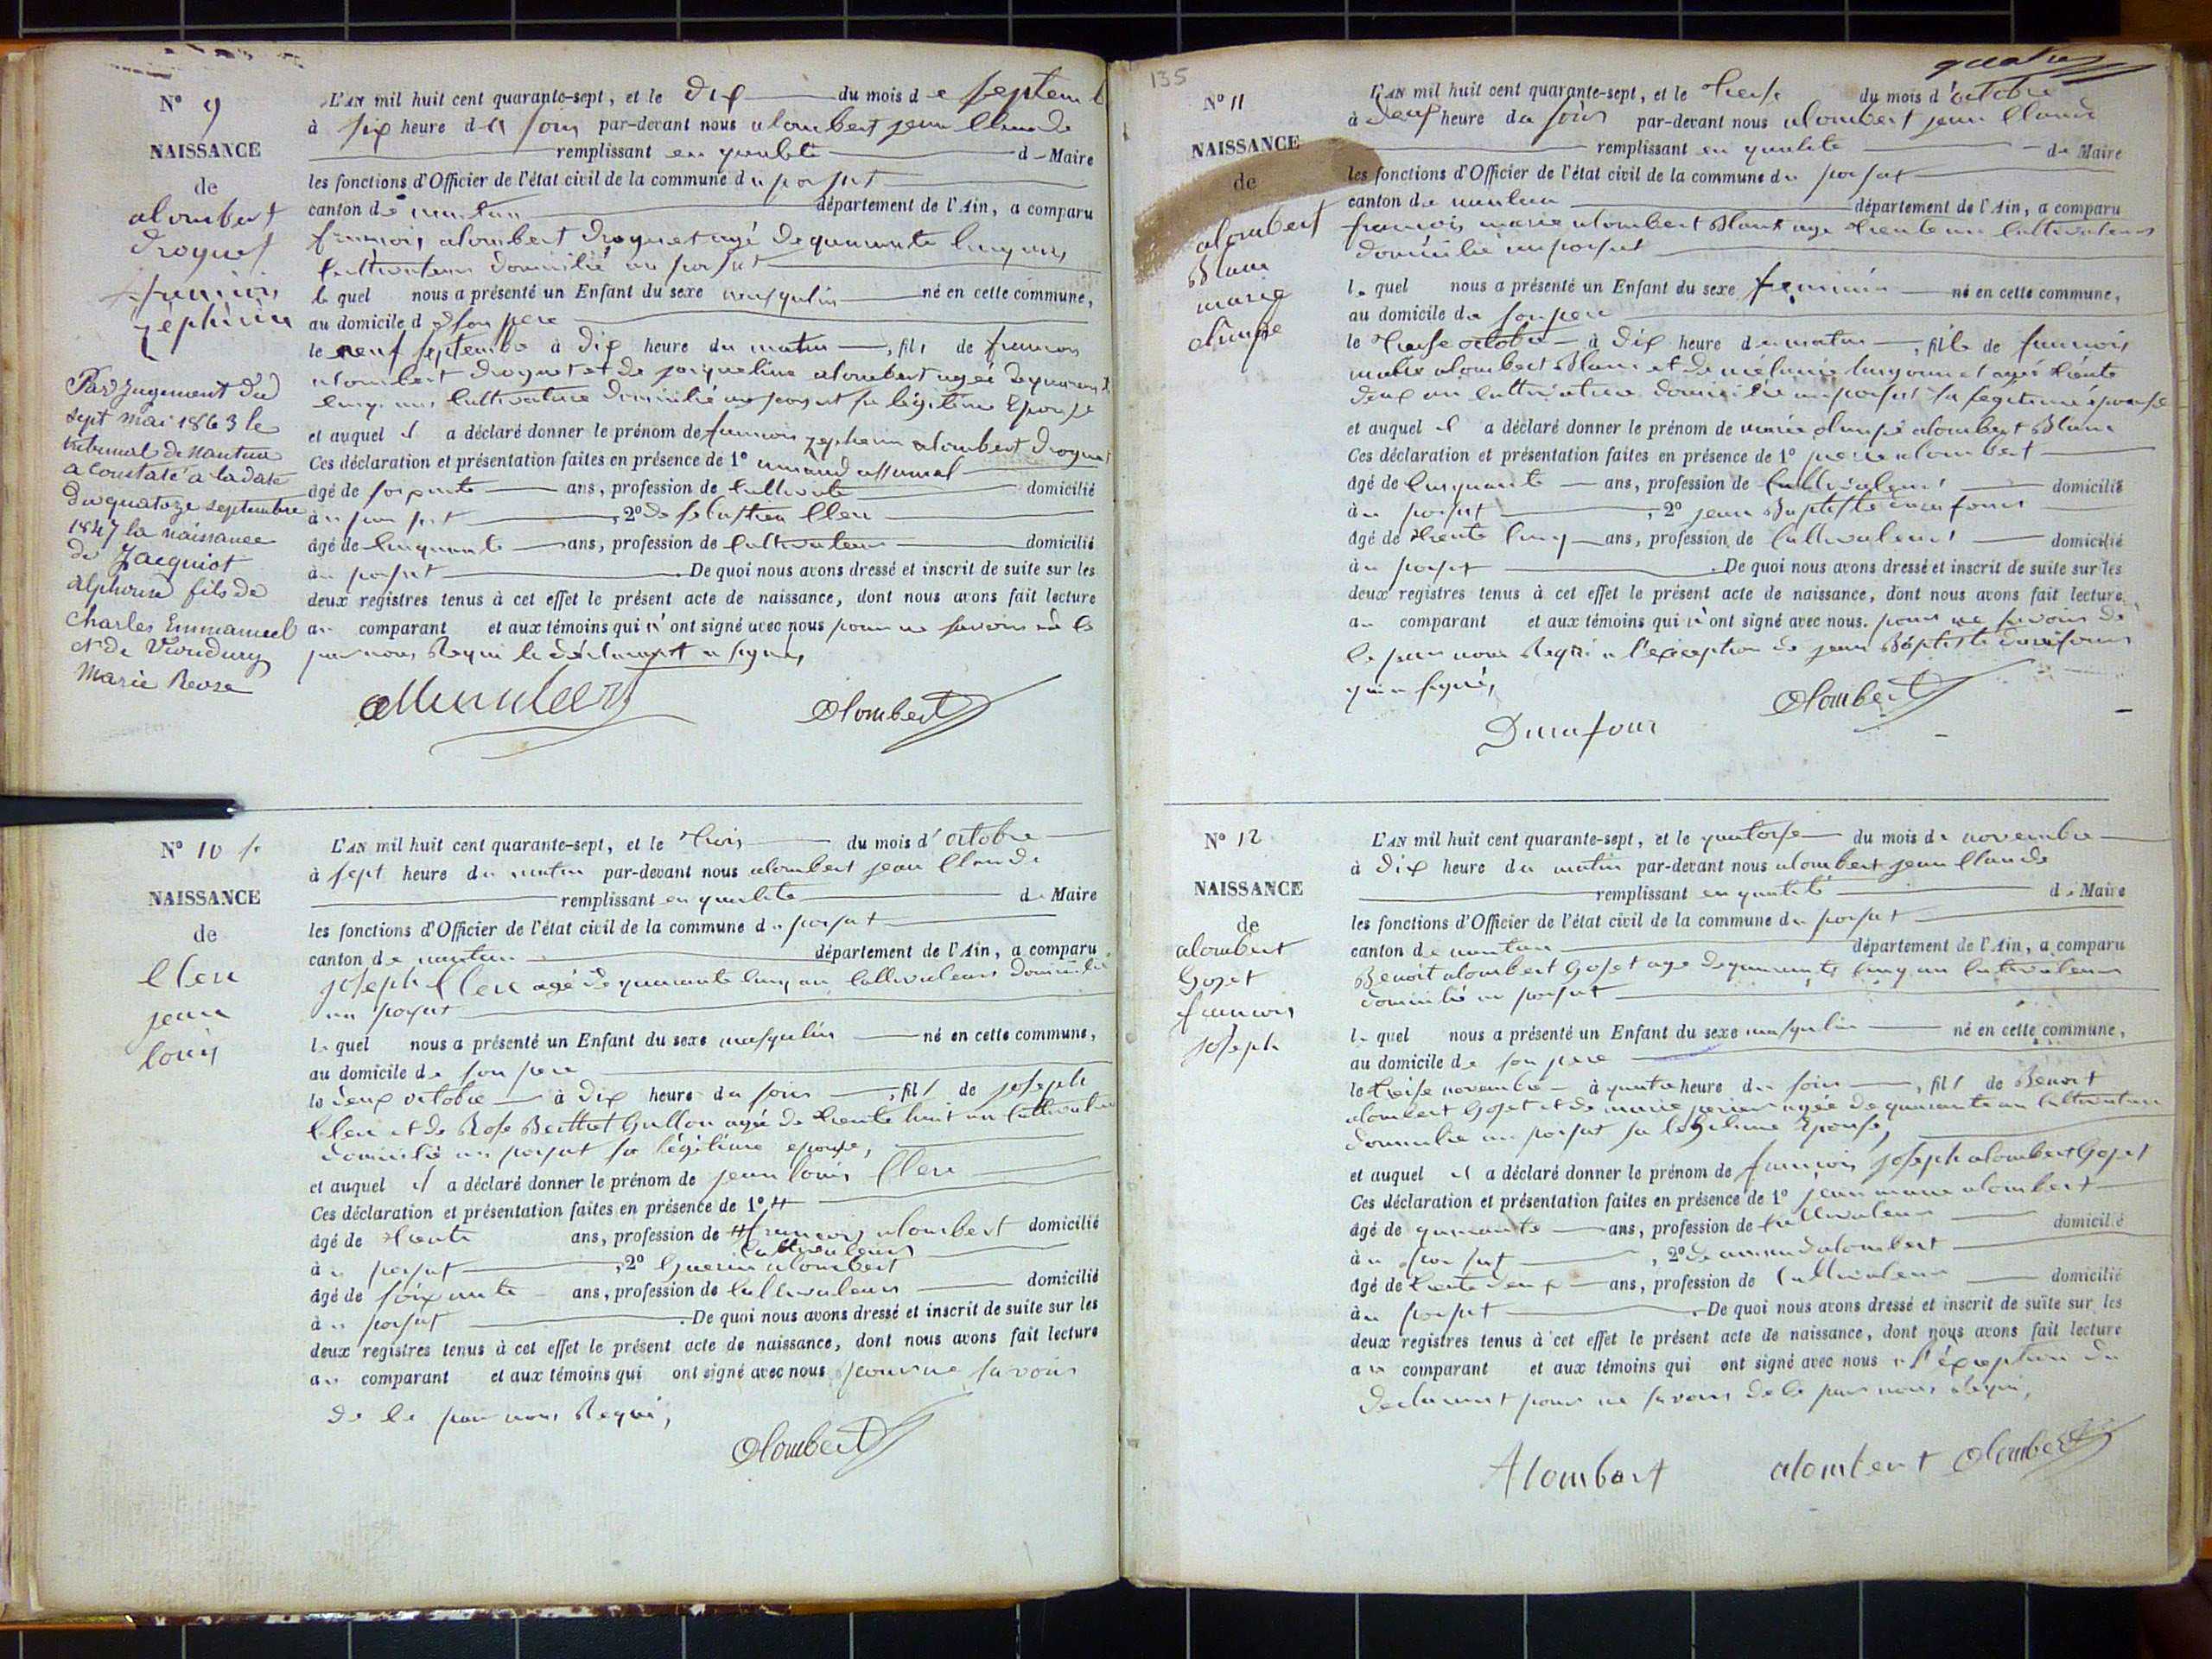 N° 9
NAISSANCE
de
alombert
Droguet
francois
zéphirin
Par Jugement du
sept mai 1863 le
tribunal de Nantua
a constaté à la date
du quatorze septembre
1847 la naissance
de Jacquiot
Alphonse fils de
Charles Emmanuel
et de
Marie Rose
L'AN mil huit cent quarante-sept, et le dix du mois de septemb
à six heure du soir par-devant nous alombert jean Claude
remplissant en qualité de Maire
les fonctions d'Officier de l'état civil de la commune du
canton de nantua département de l'Ain, a comparu
francois alombert droguet agé de quarante cinq ans
cultivateur domicilié au
le quel nous a présenté un Enfant du sexe masqulin né en cette commune,
au domicile de son pere
le neuf septembre à dix heure du matin, fils de francois
alombert droguet et de jacqueline alombert agée de quarante
cinq ans cultivatrice domicilié au sa légitime Epouse
et auquel il a déclaré donner le prénom de francois zephirin alombert droguet
Ces déclaration et présentation faites en présence de 1° armand
âgé de soixante ans, profession de domicilié
au , 2° de sebastien Clerc
âgé de cinquante ans, profession de cultivateur domicilié
au . De quoi nous avons dressé et inscrit de suite sur les
deux registres tenus à cet effet le présent acte de naissance, dont nous avons fait lecture
au comparant et aux témoins qui n'ont signé avec nous pour ne savoir de le
par nous Requi le déclarant a signé,
alombert
N° 10
NAISSANCE
de
Clerc
jean
louis
L'AN mil huit cent quarante-sept, et le trois du mois d'octobre
à sept heure du matin par-devant nous alombert jean Claude
remplissant en qualité de Maire
les fonctions d'Officier de l'état civil de la commune du
canton de nantua département de l'Ain, a comparu
joseph Clerc agé de quarante cinq an cultivateur domicilié
au
le quel nous a présenté un Enfant du sexe masqulin né en cette commune,
au domicile de son pere
le deux octobre à dix heure du soir, fils de joseph
Clerc et de Rose Berthet Gullon agée de trente huit an
domicilié au sa légitime epouse,
et auquel il a déclaré donner le prénom de jean louis Clerc
Ces déclaration et présentation faites en présence de 1°
âgé de trente ans, profession de francois alombert domicilié
cultivateur
au , 2° Guerin alombert
âgé de soixante ans, profession de cultivateur domicilié
au . De quoi nous avons dressé et inscrit de suite sur les
deux registres tenus à cet effet le présent acte de naissance, dont nous avons fait lecture
au comparant et aux témoins qui ont signé avec nous pour ne savoir
de le par nous Requi,
alombert
135
quatre
N° 11
NAISSANCE
de
alombert
Blanc
marie
olimpe
L'AN mil huit cent quarante-sept, et le treise du mois d'octobre
à heure du soir par-devant nous alombert jean Claude
remplissant en qualité de Maire
les fonctions d'Officier de l'état civil de la commune du
canton de nantua département de l'Ain, a comparu
francois marie alombert Blanc age trente un cultivateur
domicilié au
le quel nous a présenté un Enfant du sexe feminin né en cette commune,
au domicile de son pere
le treise octobre à dix heure du matin, fille de francois
marie alombert Blanc et de agée trente
deux an cultivatrice domicilié au sa légitime épouse
et auquel il a déclaré donner le prénom de marie olimpe alombert Blanc
Ces déclaration et présentation faites en présence de 1° pierre alombert
âgé de cinquante ans, profession de cultivateur domicilié
au , 2° jean Baptiste durafour
âgé de trente cinq ans, profession de cultivateur domicilié
au . De quoi nous avons dressé et inscrit de suite sur les
deux registres tenus à cet effet le présent acte de naissance, dont nous avons fait lecture
au comparant et aux témoins qui n'ont signé avec nous. pour ne savoir de
le par nous Requi a l'exception de jean Baptiste durafour
qui a signé,
alombert
Durafour
N° 12
NAISSANCE
de
alombert
Gojet
francois
joseph
L'AN mil huit cent quarante-sept, et le quatorse du mois de novembre
à dix heure du matin par-devant nous alombert jean Claude
remplissant en qualité de Maire
les fonctions d'Officier de l'état civil de la commune du
canton de nantua département de l'Ain, a comparu
Benoit alombert Gojet age de quarante cinq an cultivateur
domicilié au
le quel nous a présenté un Enfant du sexe masqulin né en cette commune,
au domicile de son pere
le treise novembre à quatre heure du soir, fils de Benoit
alombert Gojet et de marie agée de quarante an cultivatrice
domicilie au sa legitime Epouse,
et auquel il a déclaré donner le prénom de francois joseph alombert Gojet
Ces déclaration et présentation faites en présence de 1° jean marie alombert
âgé de quarante ans, profession de cultivateur domicilié
au , 2° de armand alombert
âgé de trente deux ans, profession de cultivateur domicilié
au . De quoi nous avons dressé et inscrit de suite sur les
deux registres tenus à cet effet le présent acte de naissance, dont nous avons fait lecture
au comparant et aux témoins qui ont signé avec nous a l'exception du
declarant pour ne savoir de le par nous Requi,
Alombert alombert alombert